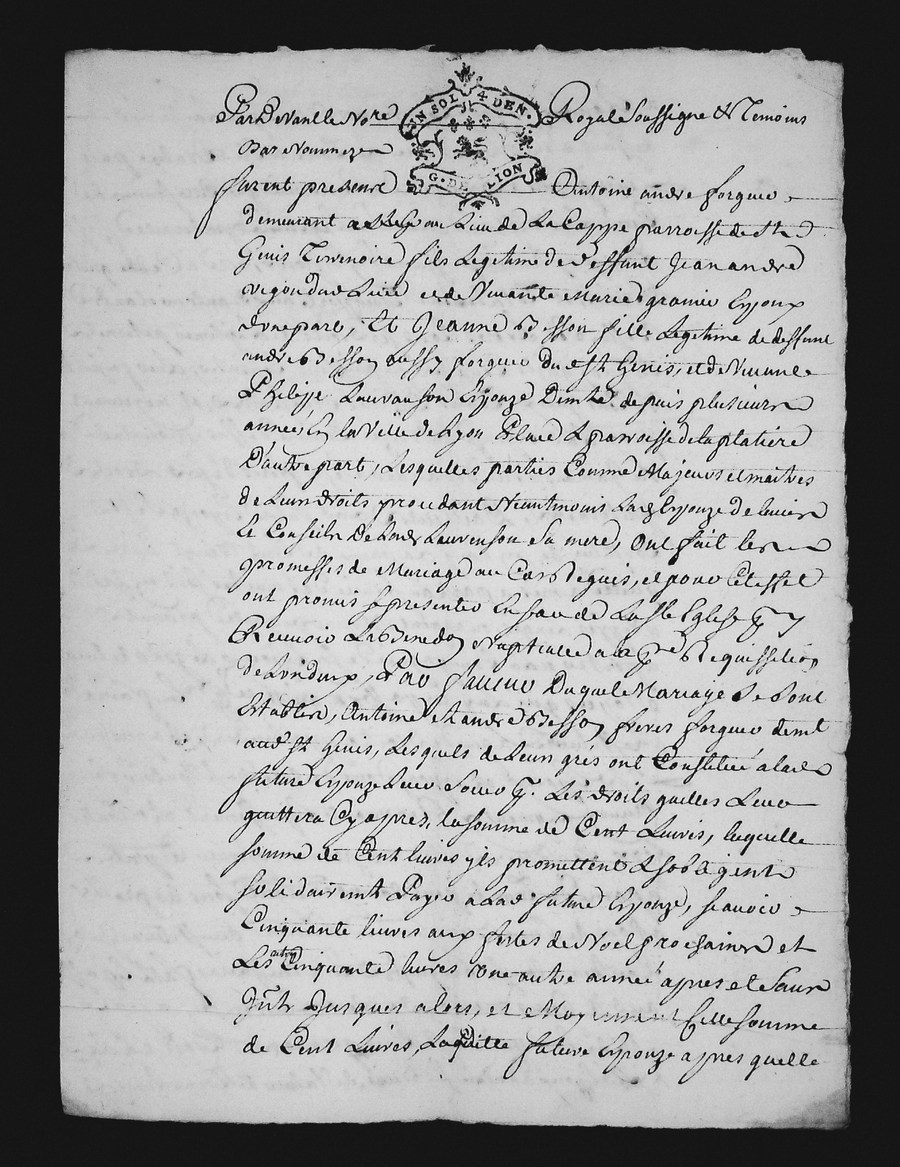 Pardevant le No.re Royal Soussigne & Temoins
UN SOL 4 DEN.
G. DE LION
Bas Nommez
furent presents Antoine andre forgeur
demeurant au lieu de La Cappe parroisse de St
Genis Terrenoire fils Legitime de deffunt Jean andre
vigon dud Lieu et de Vivante Marie granie Epoux
dune part, Et Jeanne Besson fille Legitime de deffunt
andre Besson aussy forgeur du d St Genis, et de Vivante
Philippe Lauranson Epouze Demte depuis plusieurs
années En la Ville de Lyon Place & parroisse de la platiere
D'autre part, Lesquelles parties Comme Majeurs et maitres
de Leurs droits procedant Neantmoins Lad Epouze de lavis
Le Conseils De lade Laurenson Sa mere, Ont fait les
promesses de Mariage au Cas Requis, et pour Cet effet
ont promis se presenter En face de La Ste Eglise p y
Recevoir La Benedon Nuptialle a la pre Requisition
de Lun deux, Par faveur Duquel Mariage Se Sont
Etablis, Antoine et andre Besson freres forgeur demt
aud St Genis, Lesquels de Leurs grés ont Constitué a lade
future Epouze Leur Soeur p. Les droits quelles Leur
quittera Cy apres, la somme de Cent Livres, laquelle
somme de Cent livres yls promettent & sobligent
solidairemt Payer a Lad future Epouze, scavoir
Cinquante livres aux festes de Noel prochaines et
Les autres Cinquante livres une autre année apres et Sans
Jnts Jusques alors, et Moyennant Cette somme
de Cent Livres, Laditte future Epouze apres quelle